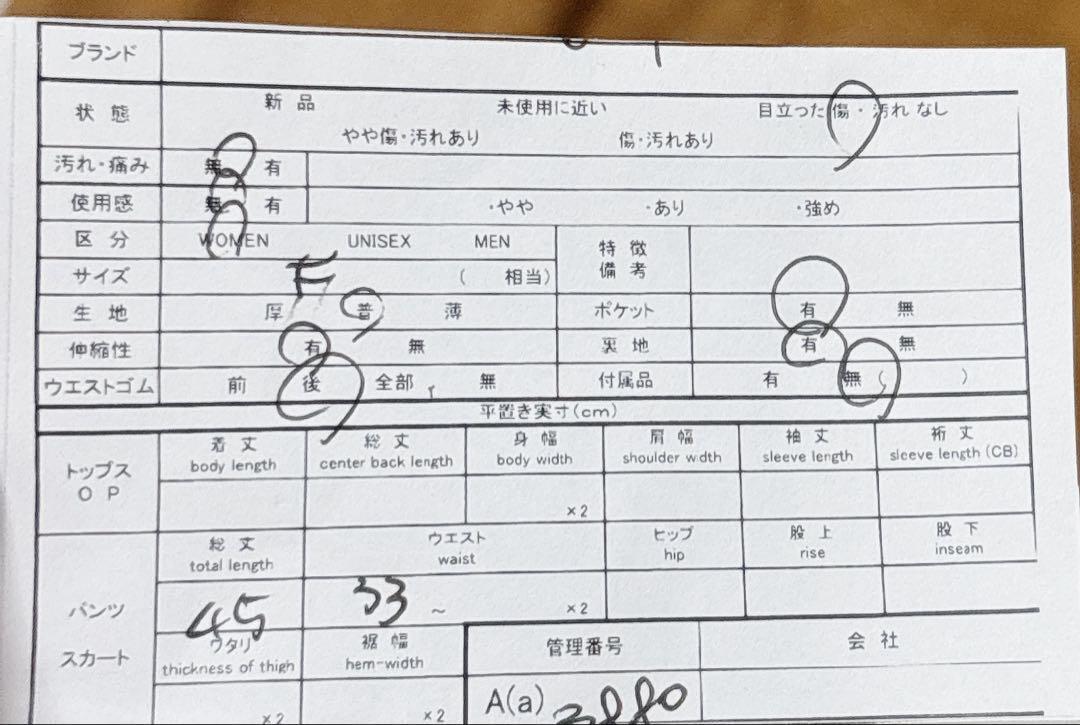 ブランド
状態 新品 未使用に近い 目立った傷・汚れなし
やや傷・汚れあり 傷・汚れあり
汚れ・痛み 無 有
使用感 無 有 ・やや ・あり ・強め
区分 WOMEN UNISEX MEN 特徴備考
サイズ F ( 相当)
生地 厚 普 薄 ポケット 有 無
伸縮性 有 無 裏地 有 無
ウエストゴム 前 後 全部 無 付属品 有 無( )
平置き実寸(cm)
トップス OP 着丈 総丈 身幅 肩幅 袖丈 裄丈
body length center back length body width shoulder width sleeve length sleeve length (CB)
×2
総丈 ウエスト ヒップ 股上 股下
total length waist hip rise inseam
パンツ 45 33 ~ ×2
スカート ワタリ 裾幅 管理番号 会社
thickness of thigh hem-width
×2 ×2 A(a) 3880